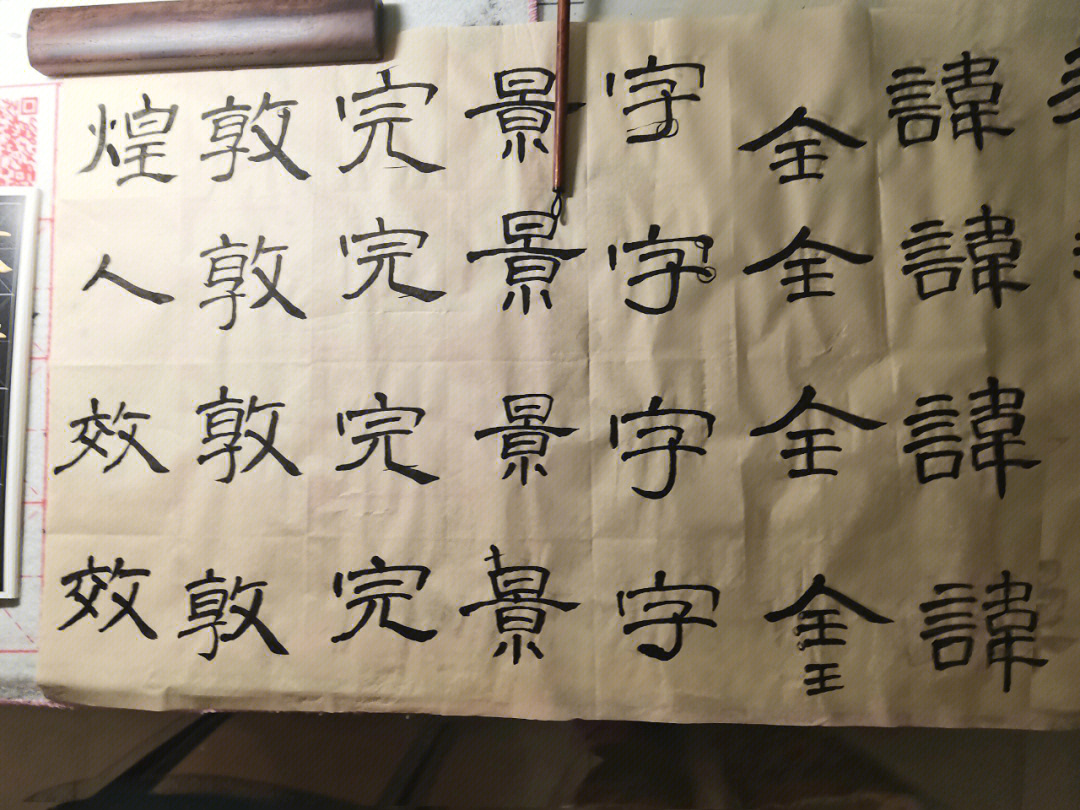 諱諱諱諱
全全全全王
字字字字
景景景景
完完完完
敦敦敦敦
煌人效效